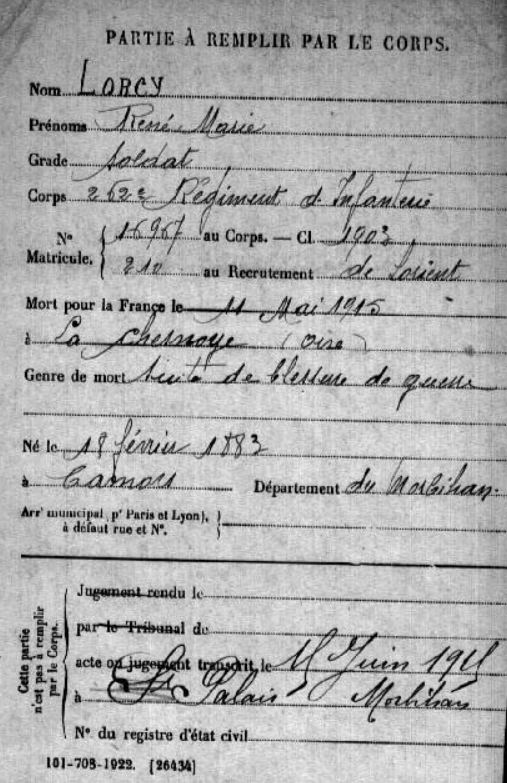 PARTIE À REMPLIR PAR LE CORPS.
Nom LORCY
Prénoms René Marie
Grade soldat
Corps 262e Régiment d'Infanterie
N° Matricule. 16967 au Corps. — Cl. 1903
210 au Recrutement de Lorient
Mort pour la France le 11 Mai 1915
à La chesnoye (oise)
Genre de mort suite de blessure de guerre
Né le 18 février 1883
à Camors Département du Morbihan.
Arrt municipal (pr Paris et Lyon), à défaut rue et N°.
Cette partie n'est pas à remplir par le Corps.
Jugement rendu le
par le Tribunal de
acte ou jugement transcrit le 15 Juin 1915
à Palais Morbihan
N° du registre d'état civil
101-708-1922. [26434]